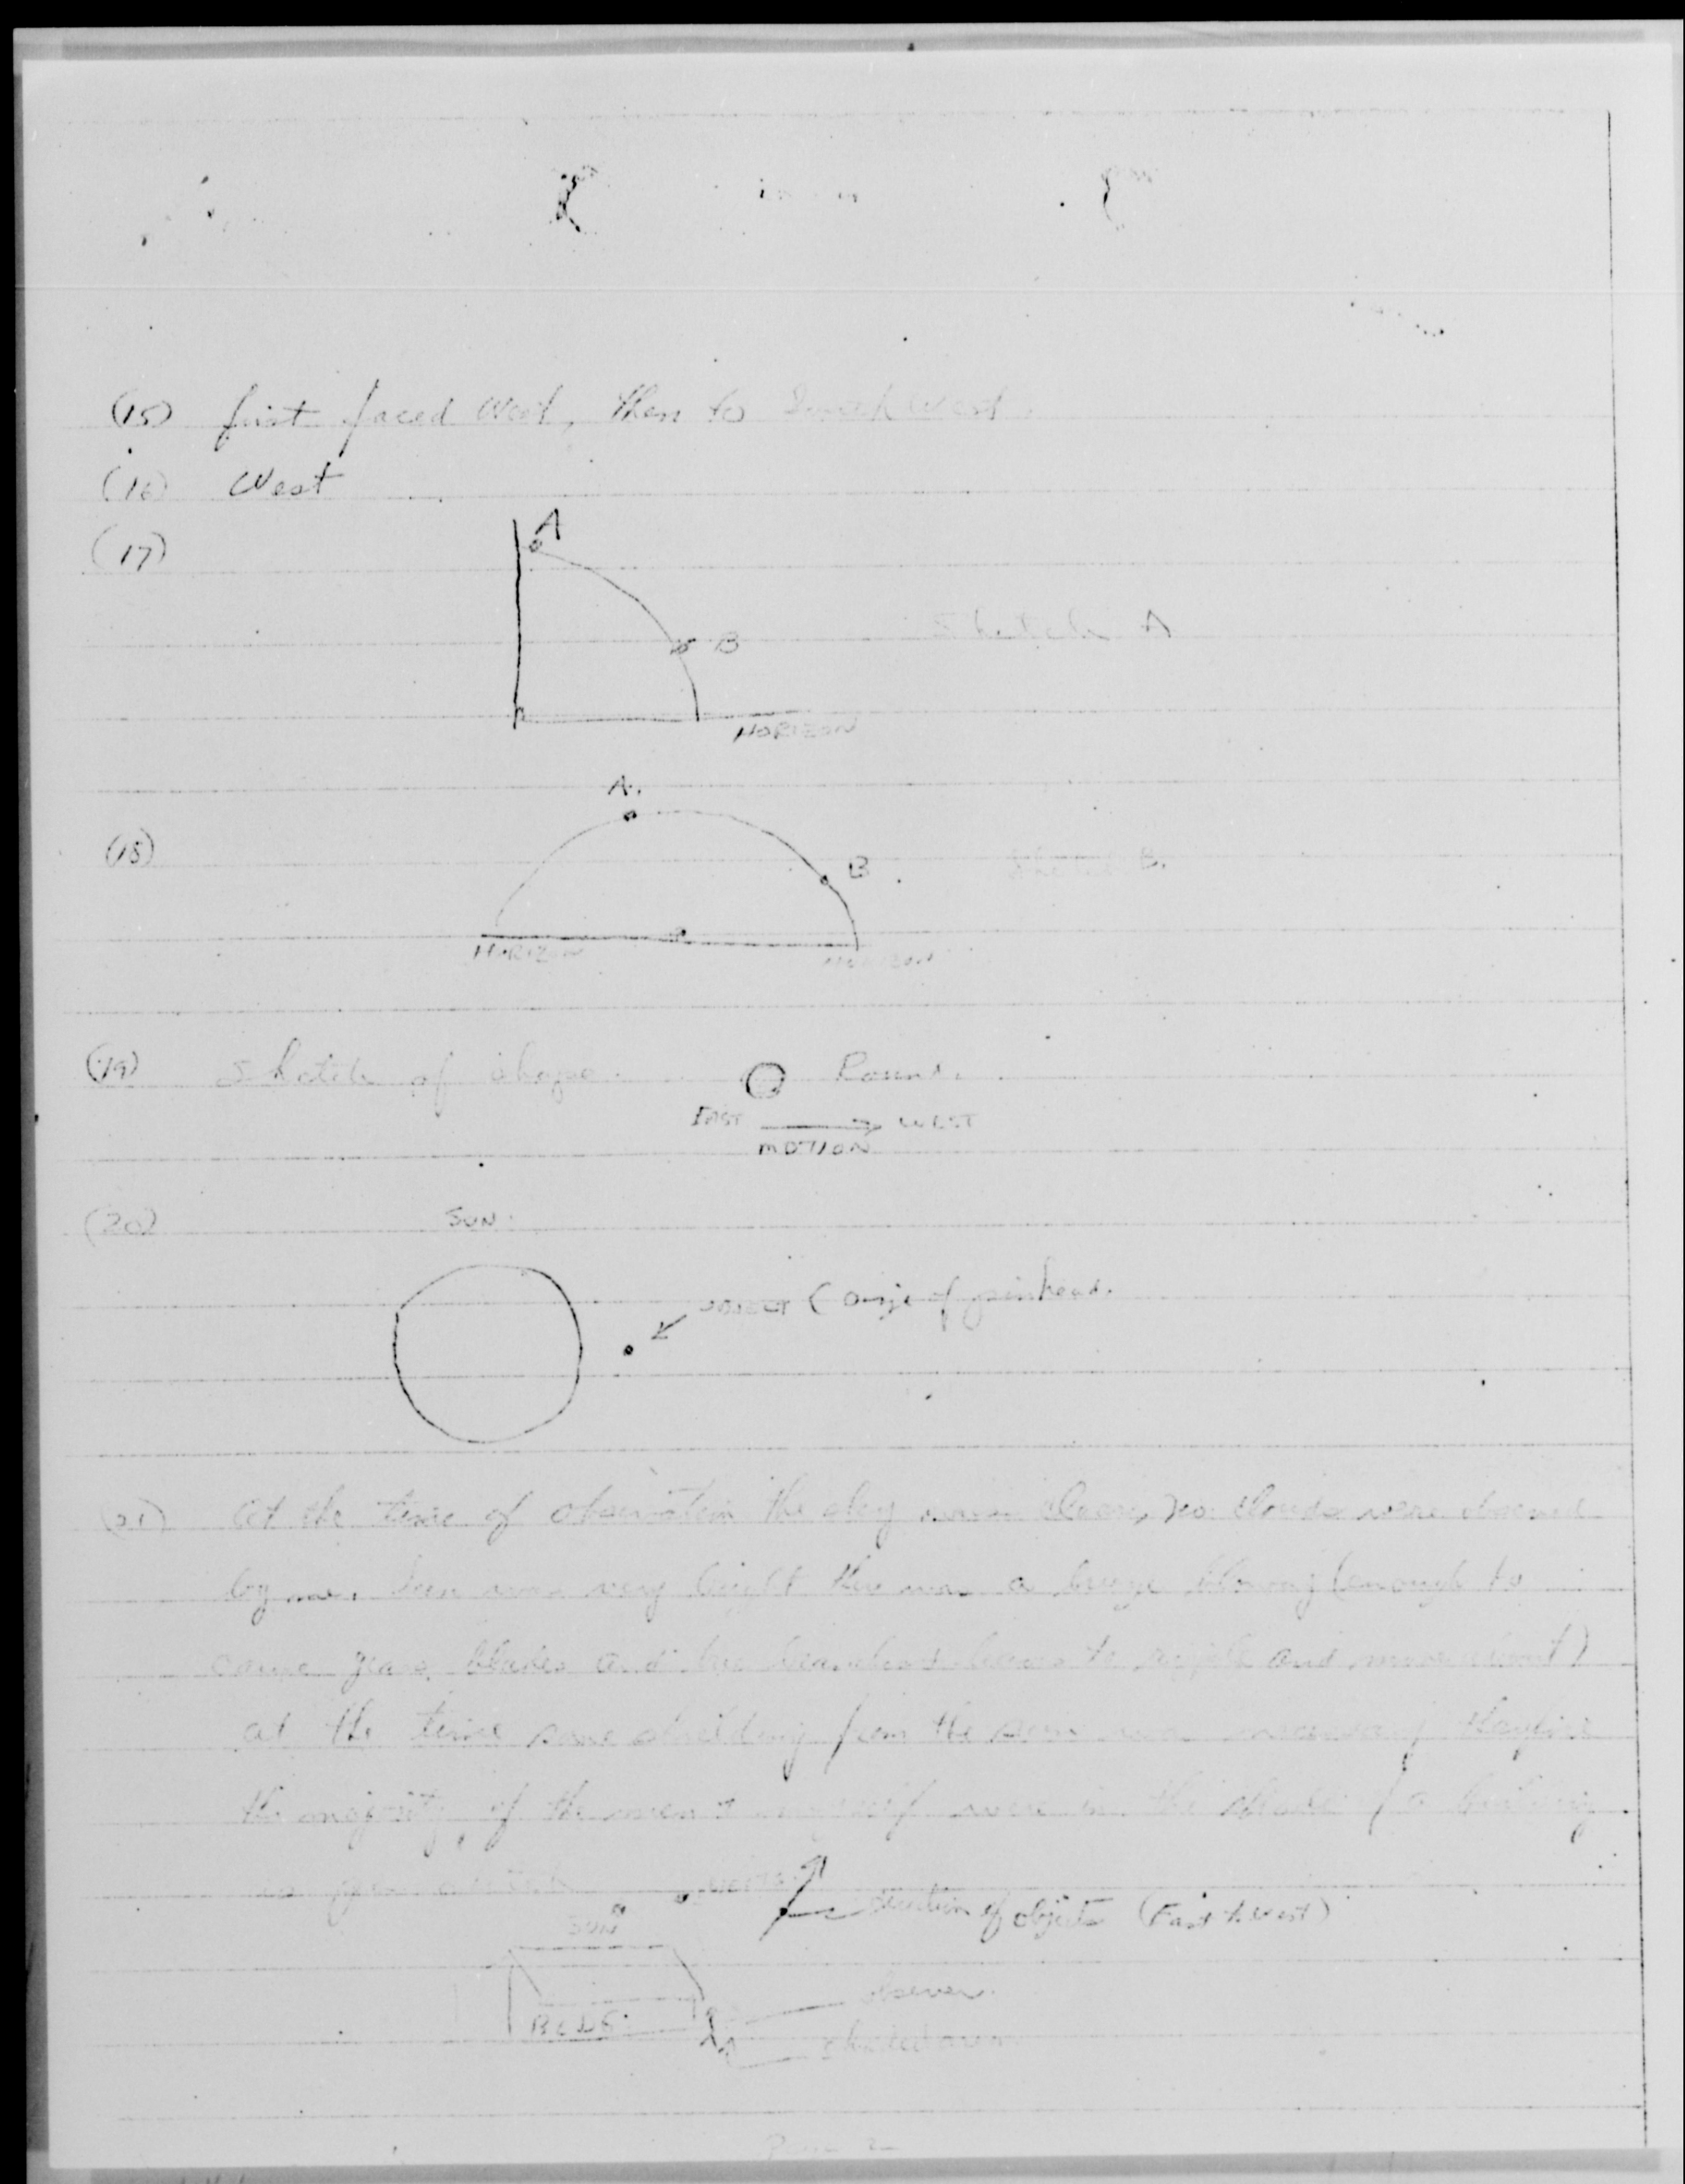 (15) first faced West, then to South West.
(16) West
(17)
A
B
Sketch A
HORIZON
A.
(18)
B
Sketch B.
HORIZON HORIZON
(19) Sketch of shape. Round.
EAST WEST
MOTION
(20) SUN
OBJECT ( size of pinhead.
(21) At the time of observation the sky was clear, no clouds were observed
by me. Sun was very bright there was a breeze blowing (enough to
cause grass blades and tree branches leaves to ripple and move about)
at the time some shielding from the sun was necessary therefore
the majority of the men & myself were in the shade of a building
SUN
direction of object (East to West)
observer
BLDG.
shaded area